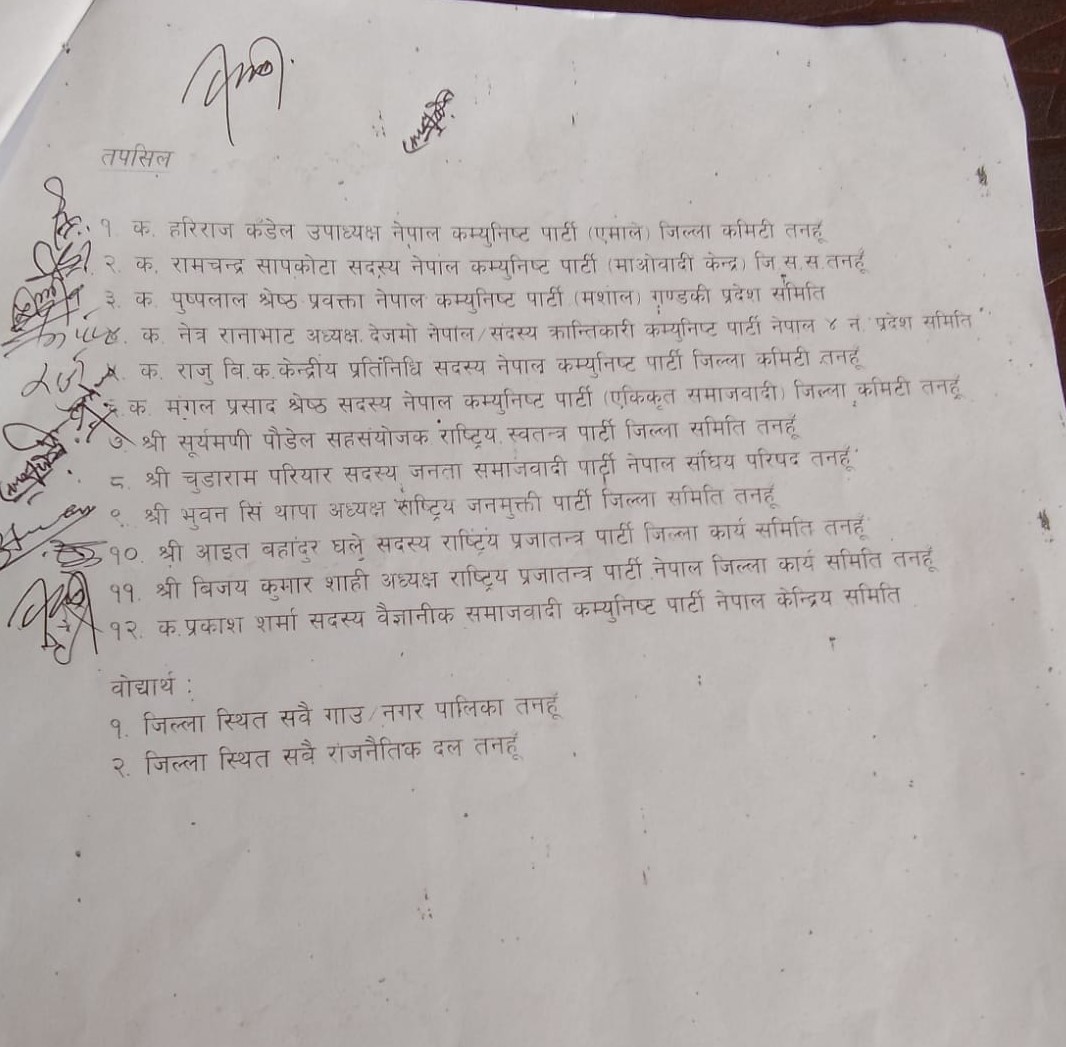 तपसिल
१. क. हरिराज कँडेल उपाध्यक्ष नेपाल कम्युनिष्ट पार्टी (एमाले) जिल्ला कमिटी तनहूँ
२. क. रामचन्द्र सापकोटा सदस्य नेपाल कम्युनिष्ट पार्टी (माओवादी केन्द्र) जि.स.स.तनहूँ
३. क. पुष्पलाल श्रेष्ठ प्रवक्ता नेपाल कम्युनिष्ट पार्टी (मशाल) गण्डकी प्रदेश समिति
४. क. नेत्र रानाभाट अध्यक्ष देजमो नेपाल/सदस्य क्रान्तिकारी कम्युनिष्ट पार्टी नेपाल ४ नं. प्रदेश समिति
५. क. राजु वि.क.केन्द्रीय प्रतिनिधि सदस्य नेपाल कम्युनिष्ट पार्टी जिल्ला कमिटी तनहूँ
६. क. मंगल प्रसाद श्रेष्ठ सदस्य नेपाल कम्युनिष्ट पार्टी (एकिकृत समाजवादी) जिल्ला कमिटी तनहूँ
७. श्री सूर्यमणी पौडेल सहसंयोजक राष्ट्रिय स्वतन्त्र पार्टी जिल्ला समिति तनहूँ
८. श्री चुडाराम परियार सदस्य जनता समाजवादी पार्टी नेपाल संघिय परिषद तनहूँ
९. श्री भुवन सिं थापा अध्यक्ष राष्ट्रिय जनमुक्ती पार्टी जिल्ला समिति तनहूँ
१०. श्री आइत बहादुर घले सदस्य राष्ट्रिय प्रजातन्त्र पार्टी जिल्ला कार्य समिति तनहूँ
११. श्री बिजय कुमार शाही अध्यक्ष राष्ट्रिय प्रजातन्त्र पार्टी नेपाल जिल्ला कार्य समिति तनहूँ
१२. क.प्रकाश शर्मा सदस्य वैज्ञानीक समाजवादी कम्युनिष्ट पार्टी नेपाल केन्द्रिय समिति
वोद्यार्थ :
१. जिल्ला स्थित सवै गाउ/नगर पालिका तनहूँ
२. जिल्ला स्थित सवै राजनैतिक दल तनहूँ